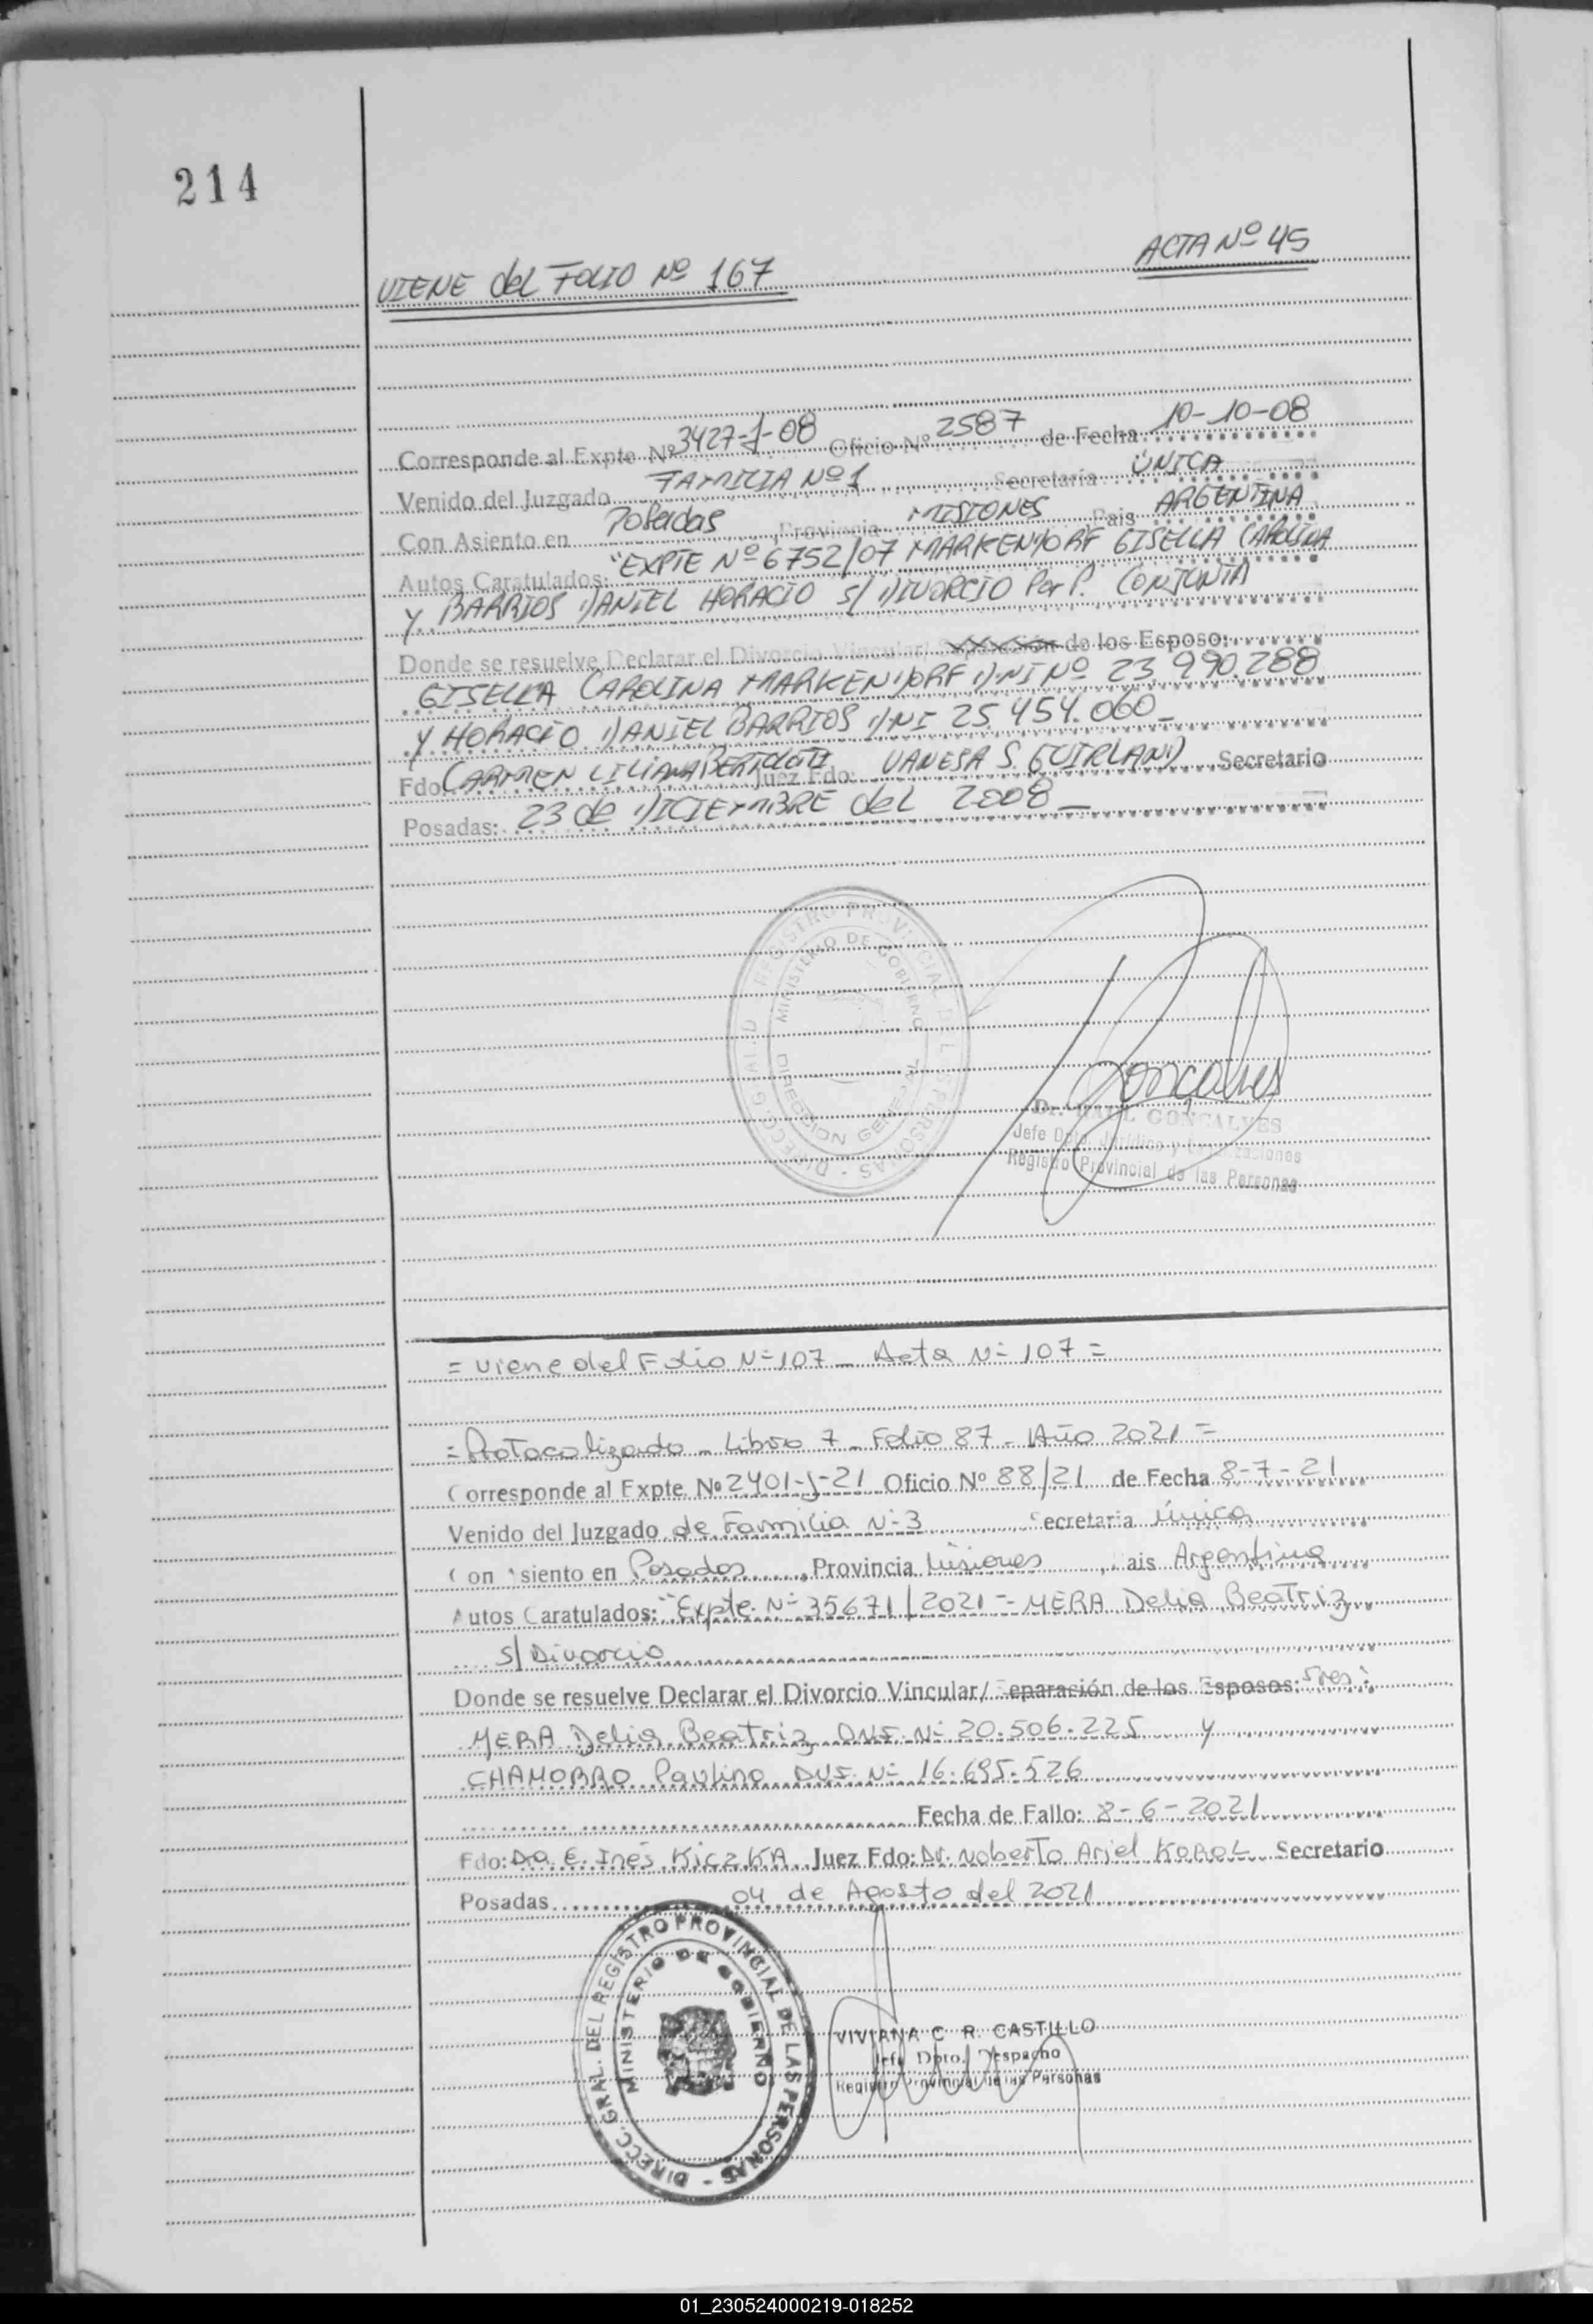 214
VIENE del FOLIO Nº 167
ACTA Nº 45
Corresponde al Expte Nº 3427-J-08 Oficio Nº 2587 de Fecha 10-10-08
Venido del Juzgado FAMILIA Nº 1 Secretaria ÚNICA
Con Asiento en Posadas, Provincia MISIONES Pais ARGENTINA
Autos Caratulados: "EXPTE Nº 6752/07 MARKENDORF GISELLA CAROLINA
Y BARRIOS DANIEL HORACIO S/ DIVORCIO Por P. CONJUNTA
Donde se resuelve Declarar el Divorcio Vincular/ Separación de los Esposo:
GISELLA CAROLINA MARKENDORF DNI Nº 23.990.288
Y HORACIO DANIEL BARRIOS DNI 25.454.060_
Fdo CARMEN LILIANA BERTOLOTTI Juez Fdo: VANESA S. GUIRLAND Secretario
Posadas: 23 de DICIEMBRE del 2008_
DIRECC. GRAL. D REGISTRO PROVINCIAL DE L S PERSONAS -
MINISTERIO DE GOBIERNO
DIRECCION GENERAL
Gonçalves
Dr. RAUL GONÇALVES
Jefe Dpto. Jurídico y Legalizaciones
Registro Provincial de las Personas
= viene del Folio Nº 107 _ Acta Nº 107 =
= Protocolizado _ Libro 7 _ Folio 87 - Año 2021 =
Corresponde al Expte Nº 2401-J-21 Oficio Nº 88/21 de Fecha 8-7-21
Venido del Juzgado de Familia Nº 3 Secretaria Única
Con Asiento en Posadas, Provincia Misiones, Pais Argentina
Autos Caratulados: "Expte. Nº 35671/2021 - MERA Delia Beatriz
S/ Divorcio
Donde se resuelve Declarar el Divorcio Vincular/ Separación de los Esposos: Sres:
MERA Delia Beatriz DNI. Nº 20.506.225 y
CHAMORRO Paulino DNI. Nº 16.695.526
Fecha de Fallo: 8-6-2021
Fdo: Dra E. Inés KiczKA Juez Fdo: Dr. Noberto Ariel KOROL Secretario
Posadas 04 de Agosto del 2021
DIRECC. GRAL. DEL REGISTRO PROVINCIAL DE LAS PERSONAS -
MINISTERIO DE GOBIERNO
VIVIANA C. R. CASTILLO
Jefe Dpto. Despacho
Registro Provincial de las Personas
01_230524000219-018252